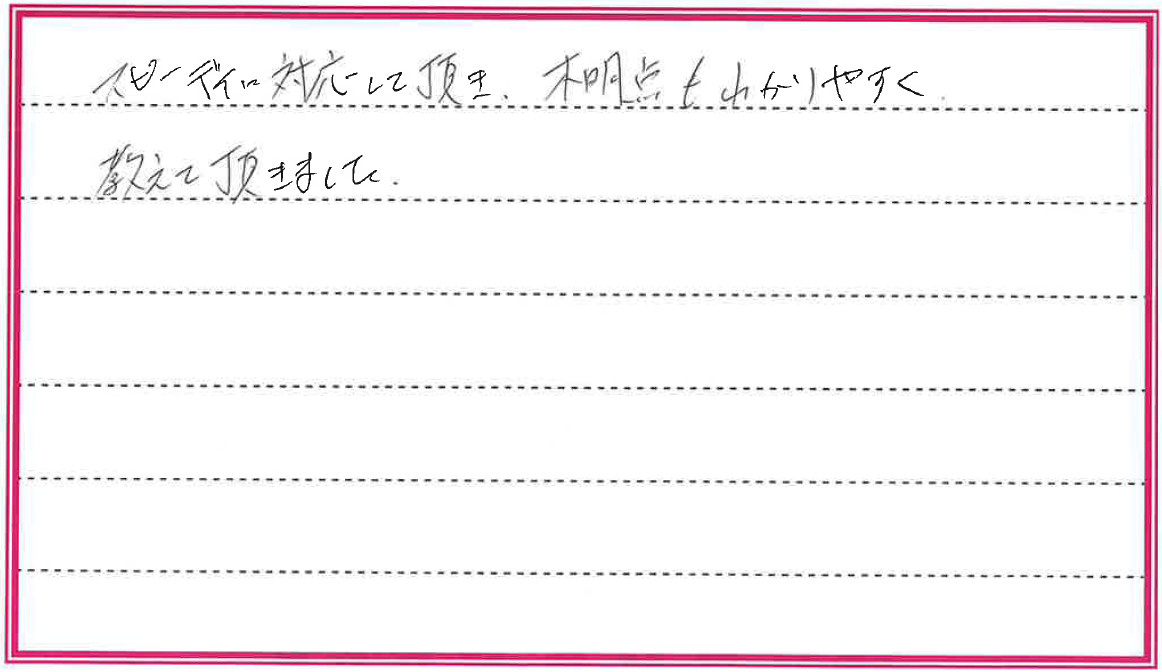 スピーディに対応して頂き、不明点もわかりやすく
教えて頂きました.